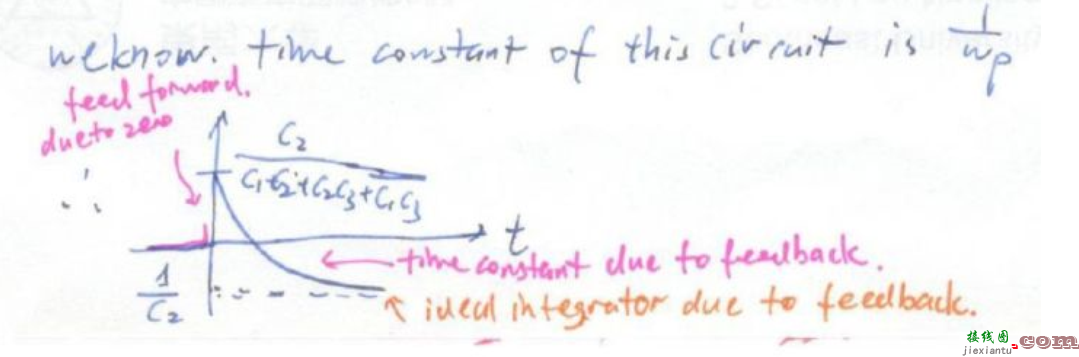 we know. time constant of this circuit is 1/wp
feed forward.
due to zero
∴
C2
C1C2+C2C3+C1C3
t
time constant due to feedback.
1
C2
ideal integrator due to feedback.
接线图
jiexiantu
.com